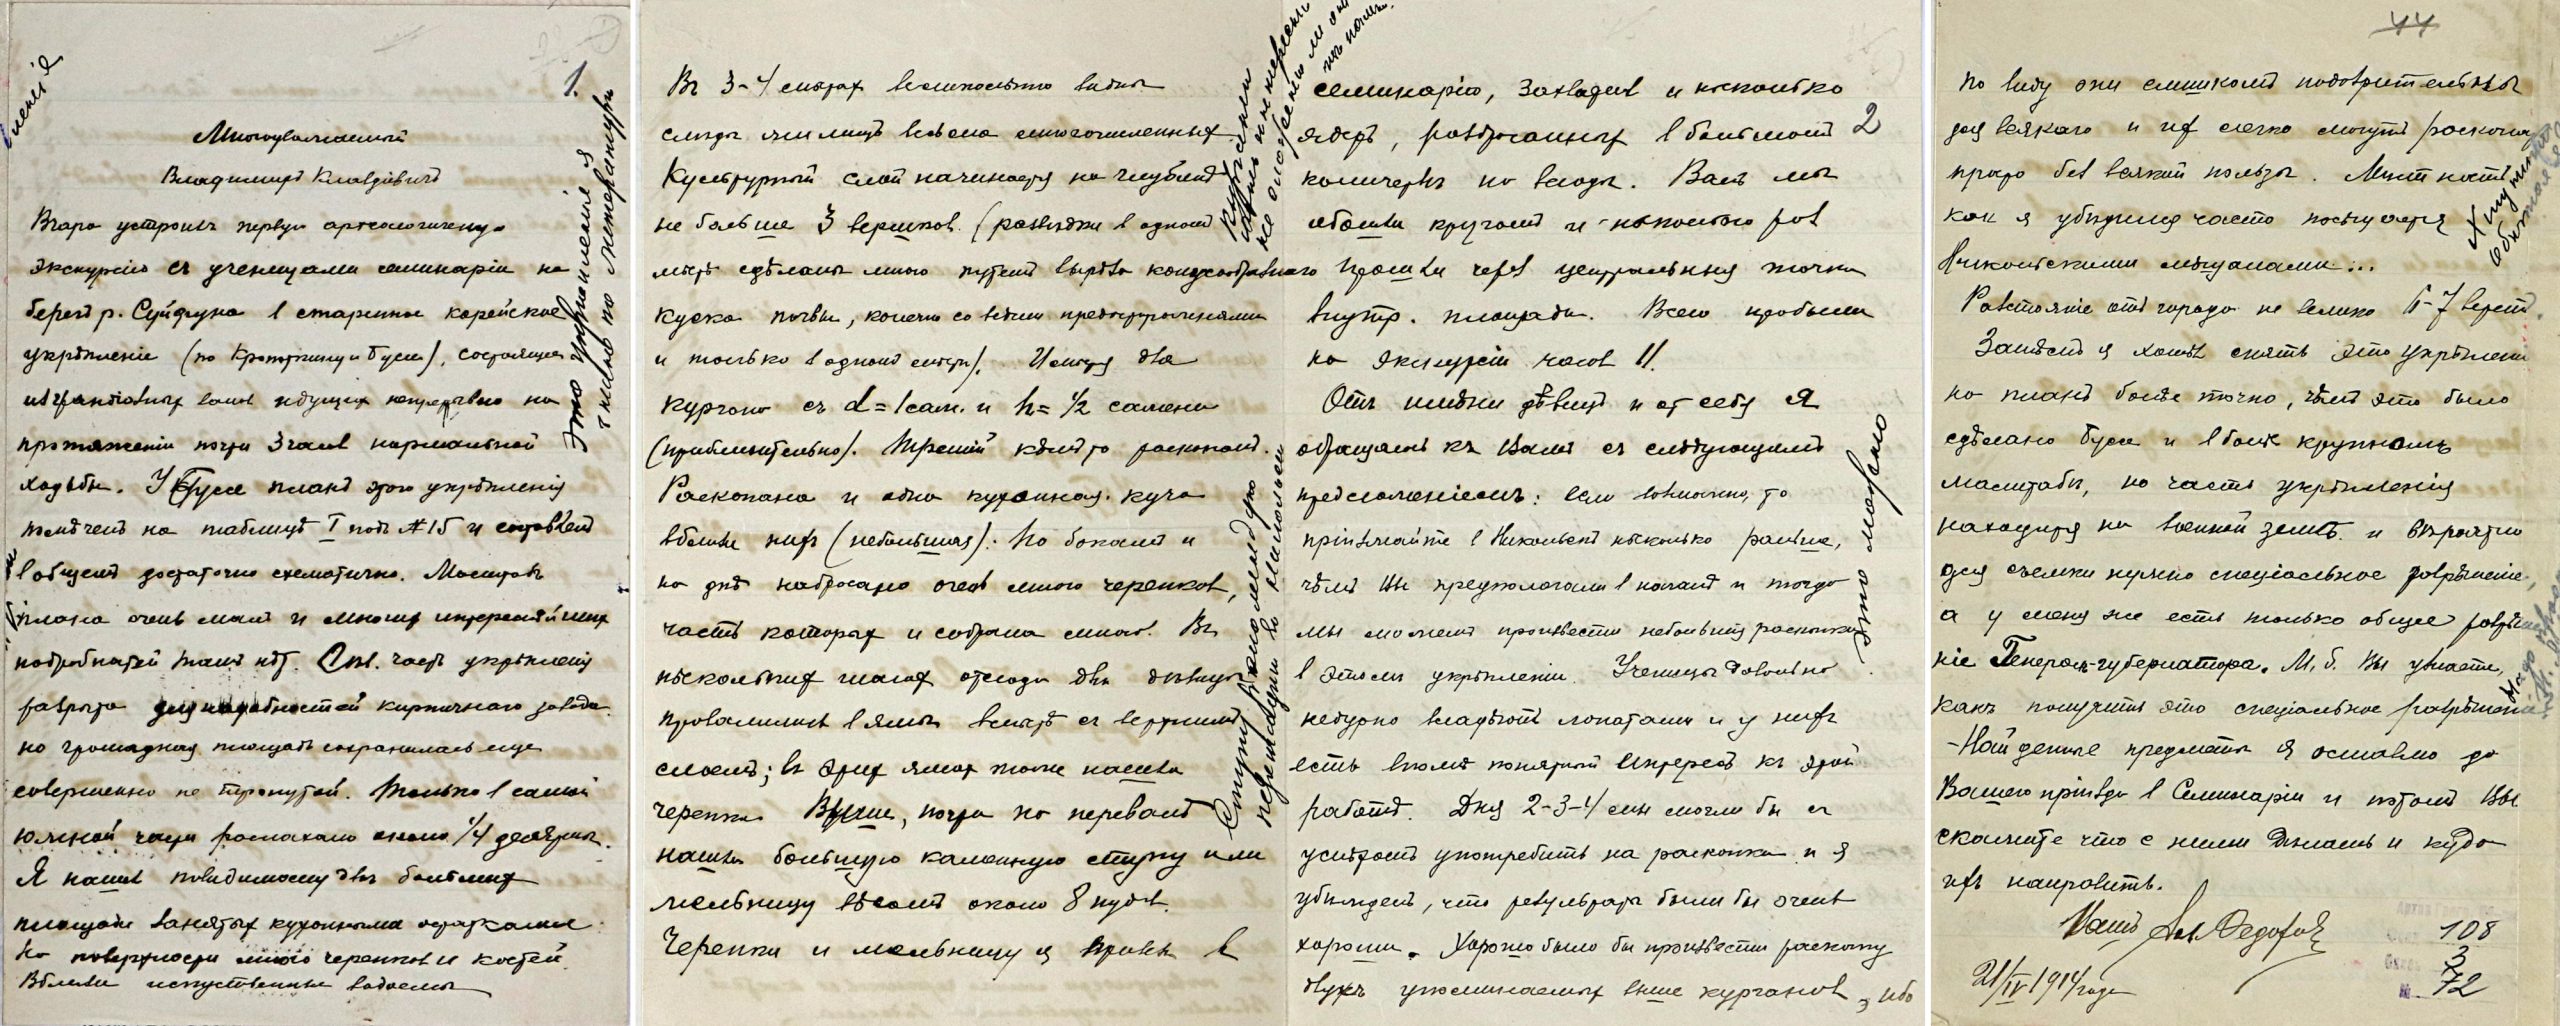 1.
Многоуважаемый
Владимиръ Клавдіевичъ
Вчера устроилъ первую археологическую
экскурсію съ ученицами семинаріи на
берегъ р. Суйфуна в старинное корейское
укрѣпленіе (по Кропоткину и Буссе), состоящее
из грандіозных валов идущих непрерывно на
протяженіи почти 3 часов нормальной
ходьбы. У Буссе планъ этого укрѣпленія
помѣчен на таблицѣ I подъ №15 и составлен
в общемъ достаточно схематично. Масштабъ
плана очень мал и многих интереснѣйших
подробностей там нѣт. часть укрѣпленія
разрыта для надобностей кирпичнаго завода
но громадная площадь сохранилась еще
совершенно не тронутой. Только в самой
южной части распахано около 1/4 десятины.
Я нашел повидимому двѣ большія
площади занятых кухонными остатками
На поверхности много черепков и костей.
Вблизи искуственные водоемы
Это укрѣпленія
Въ 3-4 мѣстах великолѣпно видны
слѣды жилищъ весьма многочисленных
Культурный слой начинается на глубинѣ
не больше 3 вершков. (развѣдки в одном
мѣстѣ сдѣланы мною путем вырѣза конусообразнаго
куска почвы, конечно со всѣми предосторожностями
и только в одномъ мѣстѣ). Имѣются два
кургана съ d = 1 саж. и h = 1/2 сажени
(приблизительно). Третій кѣмъ то раскопан.
Раскопана и одна кухонная куча
вблизи нихъ (небольшая). По бокам и
на днѣ набросано очень много черепков,
часть которых и собрана мною. Въ
нѣскольких шагах отсюда двѣ дѣвицы
провалились в ямы вмѣстѣ съ верхним
слоем; въ этих ямах тоже нашли
черепки. Выше, почти на перевалѣ
нашли большую каменную ступу или
мельницу вѣсом около 8 пудов.
Черепки и мельницу я привез в
2
семинарію, захватив и нѣсколько
ядеръ, разбросанных в большом
количествѣ на всходы. Валъ мы
обошли кругом и нѣсколько раз
прошли через центральныя точки
внутр. площади. Всего пробыли
на экскурсіи часов 11.
Отъ имени дѣвицъ и от себя я
обращаюсь къ Вамъ съ слѣдующимъ
предложеніемъ: если возможно, то
пріѣзжайте в Никольскъ нѣсколько раньше,
чѣмъ Вы предполагали в началѣ и тогда
мы можем произвести небольшія раскопки
в этомъ укрѣпленіи. Ученицы довольно
недурно владѣютъ лопатами и у нихъ
есть вполнѣ понятный интерес къ этой
работѣ. Дня 2-3-4 они могли бы съ
успѣхом употребить на раскопки и я
убѣжден, что результаты были бы очень
хороши. Хорошо было бы произвести раскопку
двухъ упоминаемых выше курганов, ибо
Это можно
44
по виду они слишком подозрительны
для всякаго и их легко могутъ раскопать
просто без всякой пользы. Мѣстность
как я убѣдился часто посѣщается
Никольскими мѣщанами...
Разстояніе отъ города не велико 6-7 верстъ.
Затѣмъ я хотѣл снять это укрѣпленіе
на планъ болѣе точно, чѣмъ это было
сдѣлано Буссе и в болѣе крупномъ
масштабѣ, но часть укрѣпленія
находится на военной землѣ и вѣроятно
для съемки нужно спеціальное разрѣшеніе,
а у меня же есть только общее разрѣше-
ніе Генерал-губернатора. М. б. Вы узнаете,
какъ получить это спеціальное разрѣшеніе
- Найденные предметы я оставлю до
Вашего пріѣзда в Семинаріи и потом Вы
скажите что с ними дѣлать и куда
ихъ направить.
Вашъ Федоров
21/IV 1914 года
108
3
72